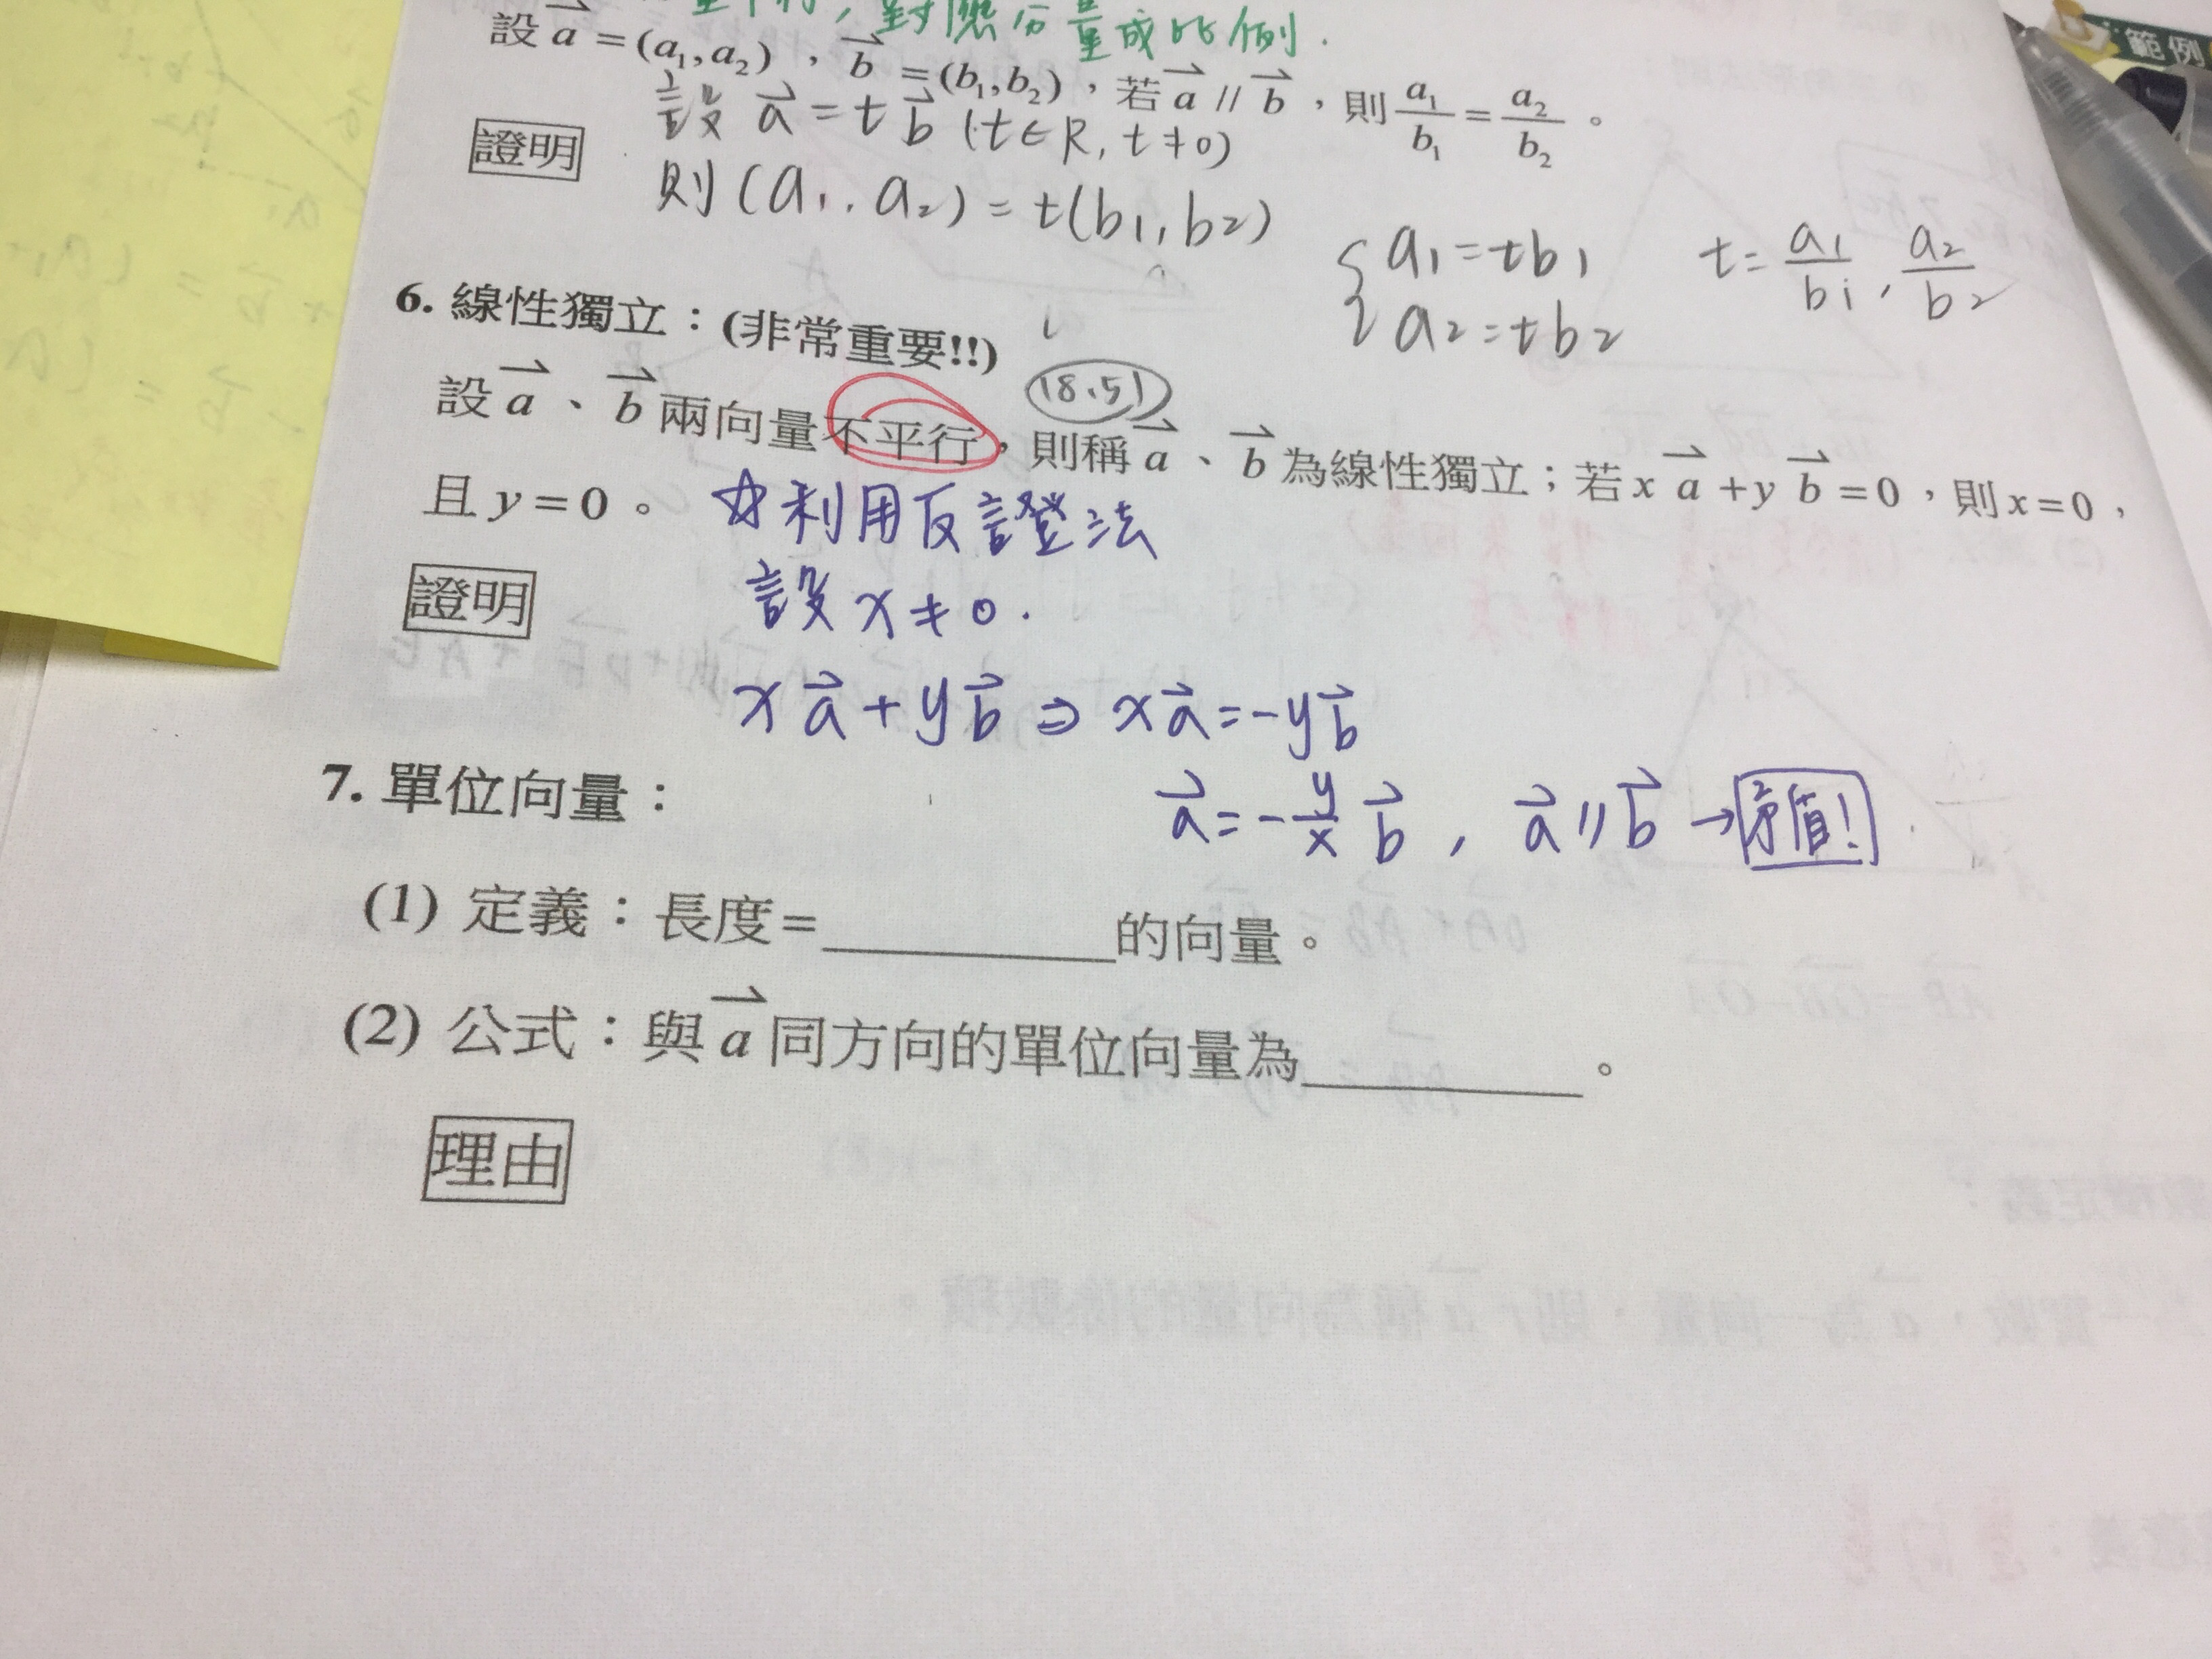 對應分量成比例.
設 a⃗ = (a₁, a₂)，b⃗ = (b₁, b₂)，若 a⃗ // b⃗，則 a₁/b₁ = a₂/b₂。
設 a⃗ = t b⃗ (t∈R, t≠0)
證明
則 (a₁, a₂) = t(b₁, b₂)
{ a₁ = tb₁
a₂ = tb₂
t = a₁/b₁, a₂/b₂
6. 線性獨立：(非常重要!!)
(8.5)
設 a⃗、b⃗ 兩向量不平行，則稱 a⃗、b⃗ 為線性獨立；若 x a⃗ + y b⃗ = 0，則 x = 0，
且 y = 0。 ☆利用反證法
證明 設 x ≠ 0.
x a⃗ + y b⃗ ⇒ x a⃗ = -y b⃗
a⃗ = -y/x b⃗, a⃗ // b⃗ → 矛盾!
7. 單位向量：
(1) 定義：長度=__________的向量。
(2) 公式：與 a⃗ 同方向的單位向量為__________。
理由
範例